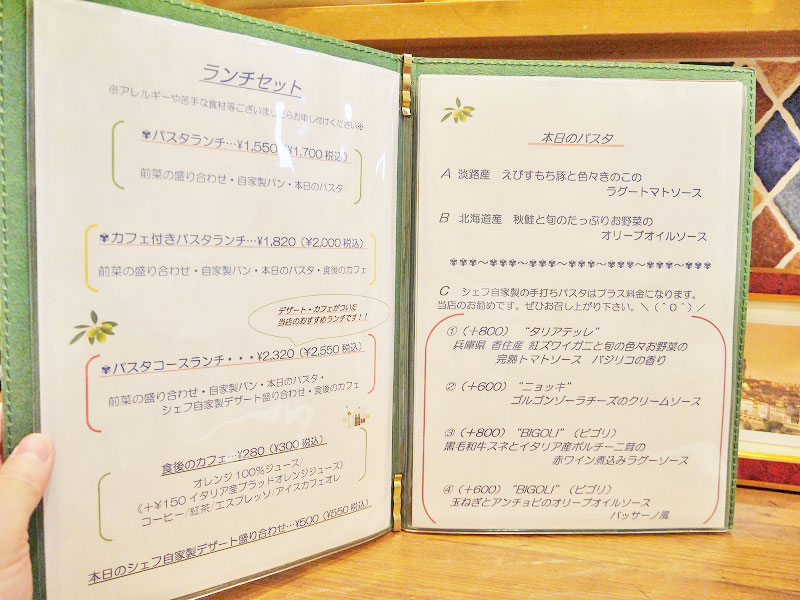 ランチセット
※アレルギーや苦手な食材等ございましたらお申し付けください※
✾パスタランチ…¥1,550（¥1,700税込）
前菜の盛り合わせ・自家製パン・本日のパスタ
✾カフェ付きパスタランチ…¥1,820（¥2,000税込）
前菜の盛り合わせ・自家製パン・本日のパスタ・食後のカフェ
デザート・カフェがついた
当店のおすすめランチです！！
✾パスタコースランチ・・・¥2,320（¥2,550税込）
前菜の盛り合わせ・自家製パン・本日のパスタ・
シェフ自家製デザート盛り合わせ・食後のカフェ
食後のカフェ…¥280（¥300税込）
オレンジ100％ジュース/
《＋¥150イタリア産ブラッドオレンジジュース》
コーヒー/紅茶/エスプレッソ/アイスカフェオレ
本日のシェフ自家製デザート盛り合わせ…¥500（¥550税込）
本日のパスタ
A 淡路産 えびすもち豚と色々きのこの
ラグートマトソース
B 北海道産 秋鮭と旬のたっぷりお野菜の
オリーブオイルソース
✾✾✾～✾✾✾～✾✾✾～✾✾✾～✾✾✾～✾✾✾～✾✾✾
C シェフ自家製の手打ちパスタはプラス料金になります。
当店のお勧めです。ぜひお召し上がり下さい。＼（＾O＾）／
①（＋800） “タリアテッレ”
兵庫県 香住産 紅ズワイガニと旬の色々お野菜の
完熟トマトソース バジリコの香り
②（＋600） “ニョッキ”
ゴルゴンゾーラチーズのクリームソース
③（＋800） “BIGOLI”（ビゴリ）
黒毛和牛スネとイタリア産ポルチーニ茸の
赤ワイン煮込みラグーソース
④（＋600） “BIGOLI”（ビゴリ）
玉ねぎとアンチョビのオリーブオイルソース
バッサーノ風